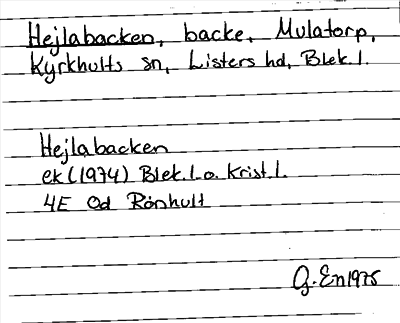 Hejlabacken, backe, Mulatorp,
Kyrkhults sn, Listers hd, Blek. l.
Hejlabacken
ek (1974) Blek. l. o. Krist. l.
4E 0d Rönhult
G. En 1975